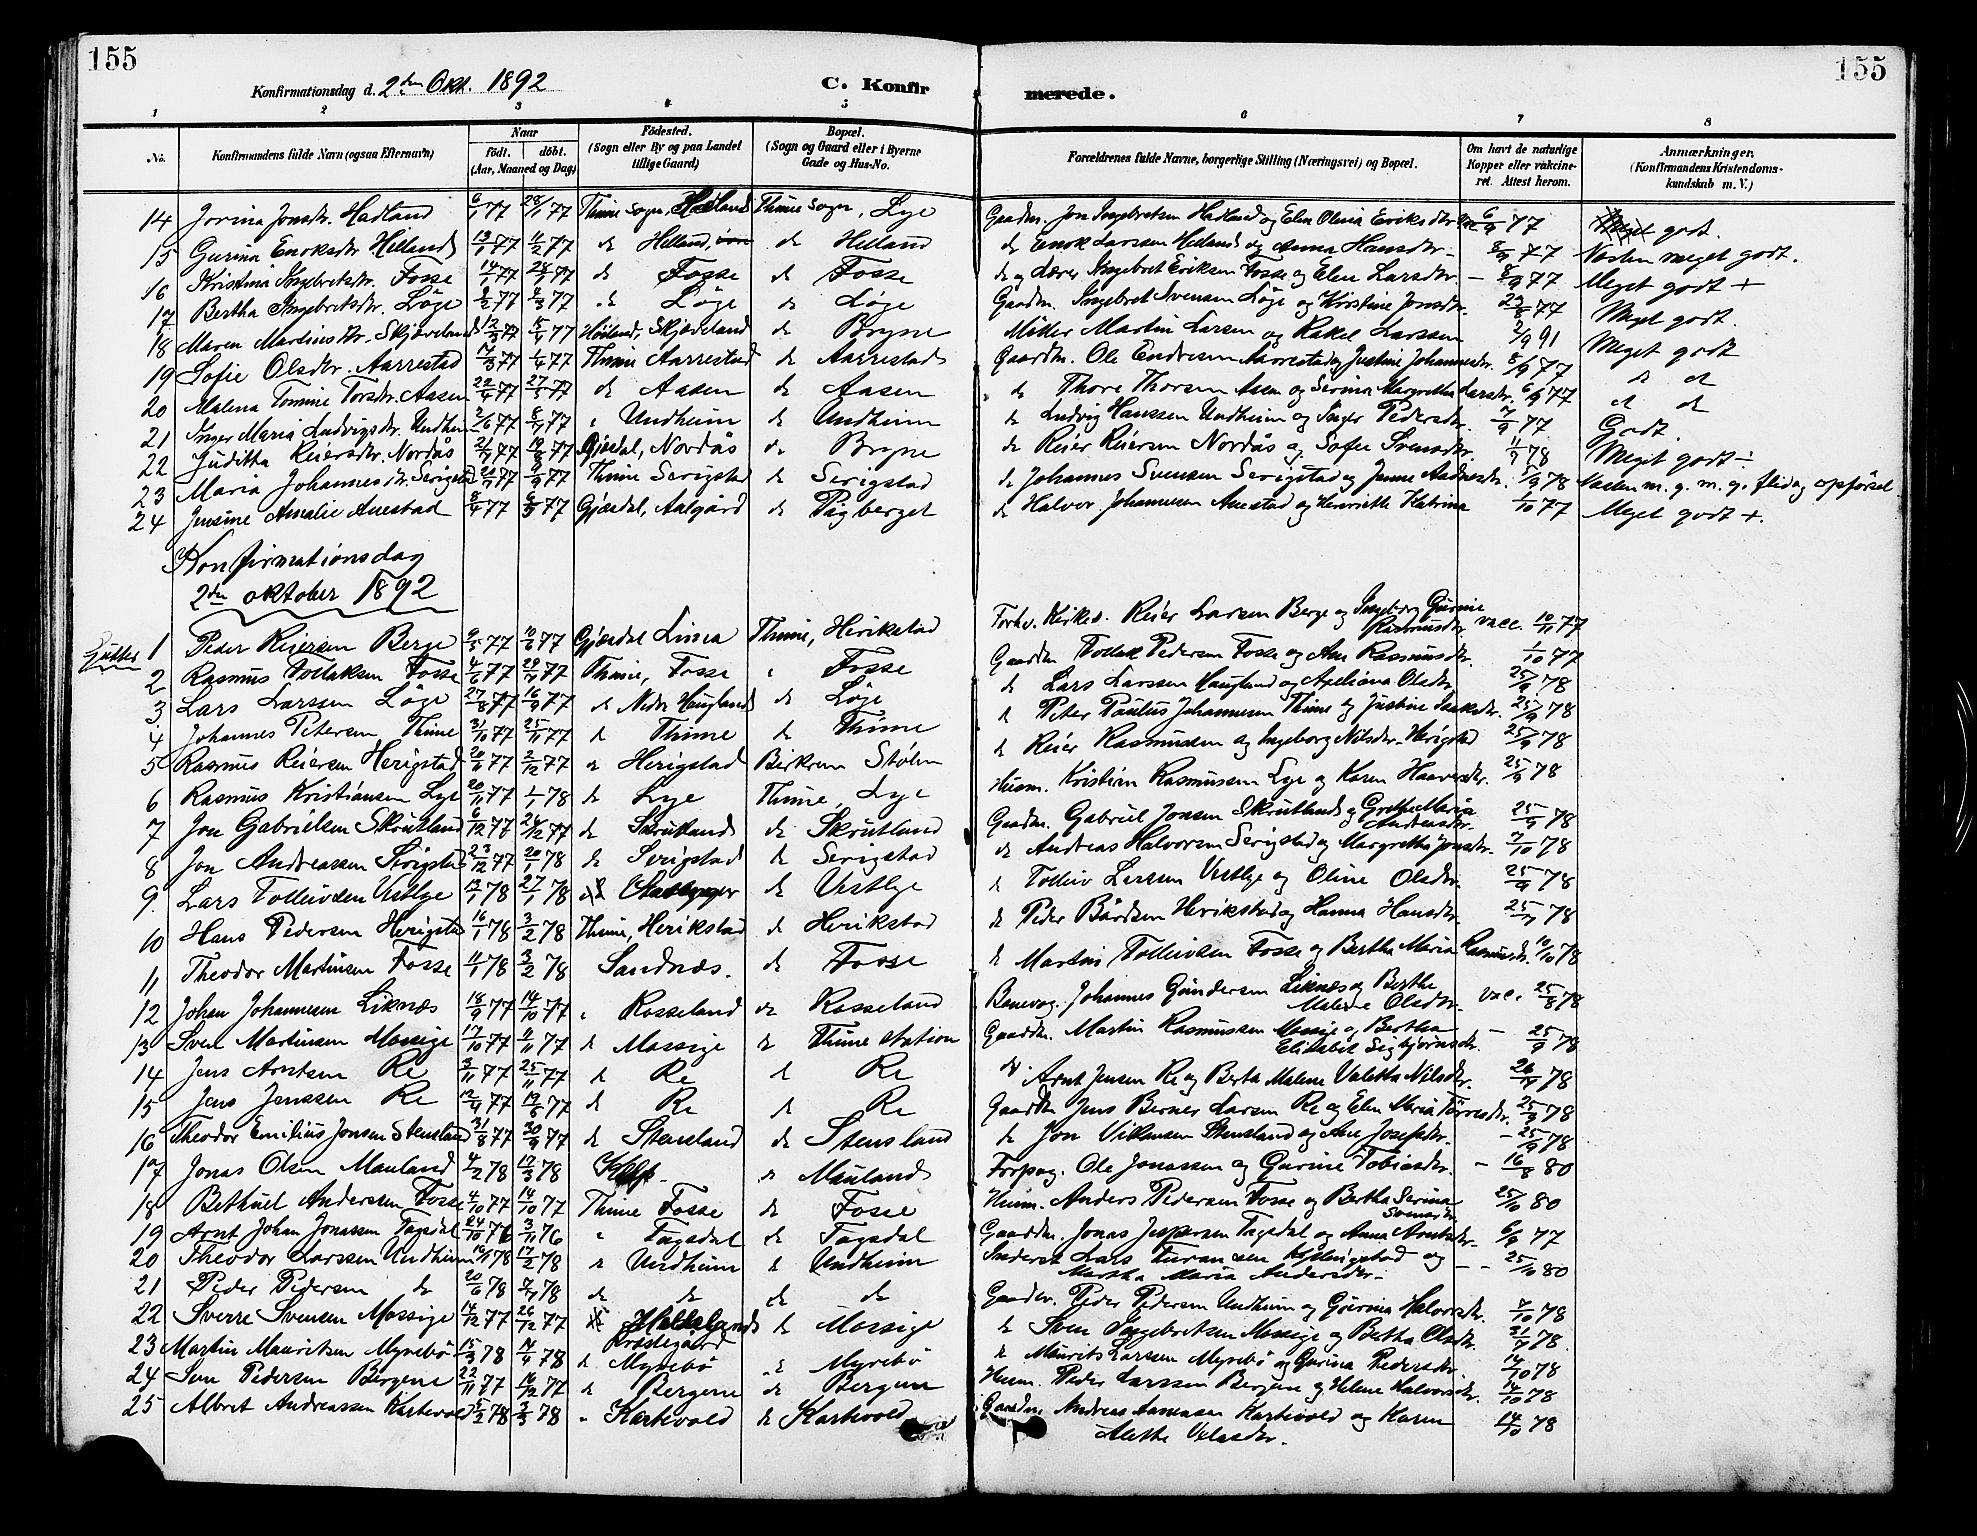 155
155
Konfirmationsdag d. 2den Okt. 1892
C. Konfir
merede.
1 2 3 4 5 6 7 8
No.
Konfirmandens fulde Navn (ogsaa Efternavn)
Naar
født. døbt.
(Aar, Maaned og Dag)
Fødested.
(Sogn eller By og paa Landet
tillige Gaard)
Bopæl.
(Sogn og Gaard eller i Byerne
Gade og Hus-No.
Forældrenes fulde Navne, borgerlige Stilling (Næringsvei) og Bopæl.
Om havt de naturlige
Kopper eller vakcine-
ret. Attest herom.
Anmærkninger,
(Konfirmandens Kristendoms-
kundskab m. V.)
14 Jorina Jonsdtr. Hadland 6/1 77 28/1 77 Thime sogn, Hadland Thime sogn, Lye Gaardm. Jon Ingebretsen Hadland og Elen Olena Eriksdtr. 6/9 77 godt.
15 Gurina Enoksdtr. Helland 13/1 77 11/2 77 do Helland do Helland do Enok Larssen Helland og Anna Hansdtr. - 8/9 77 Næsten meget godt.
16 Kristina Ingebretsdtr. Fosse 14/1 77 28/1 77 do Fosse do Fosse do og Lærer Ingebret Eriksen Fosse og Elen Larsdtr. - 8/9 77 Meget godt +
17 Bertha Ingebretsdtr. Löge 3/2 77 4/3 77 do Löge do Löge Gaardm. Ingebret Svensen Löge og Kristine Jonsdtr. 29/8 77 Meget godt.
18 Maren Martinsdtr. Skjæveland 12/3 77 15/4 77 Høiland, Skjæveland do Bryne Möller Martin Larsen og Rakel Larssen 2/9 91 Meget godt
19 Sofie Olsdtr. Aarrestad 7/3 77 1/4 77 Thime Aarrestad do Aarrestad Gaardm. Ole Endresen Aarrestad og Justine Johannesdtr. 8/9 77 do do
20 Malena Tomine Torsdtr. Aasen 22/4 77 27/5 77 do Aasen do Aasen do Thore Thorsen Aasen og Serina Margretha Larsdtr. 6/9 77 do do
21 Inger Maria Ludvigsdtr. Undheim 2/6 77 8/7 77 " Undheim do Undheim do Ludvig Hanssen Undheim og Inger Pedersdtr. 7/9 77 Godt
22 Juditha Reiersdtr. Nordås 21/7 77 19/8 77 Gjæsdal, Nordås do Bryne do Reier Reiersen Nordås og Sofie Svensdtr. 11/9 78 Meget godt ÷
23 Maria Johannesdtr. Serigstad 20/7 77 9/9 77 Thime Serigstad do Serigstad do Johannes Svensen Serigstad og Jenne Aadnesdtr. 5/9 78 Næsten m. g. m. g. flid og opførsel
24 Jensine Amalie Auestad 8/4 77 6/5 77 Gjæsdal, Aalgård do Pigberget do Halvor Johannesen Auestad og Henriette Katrina 1/10 77 Meget godt +.
Konfirmationsdag
2den oktober 1892
Gutter
1 Peder Reiersen Berge 9/5 77 10/6 77 Gjæsdal Limea Thime, Herikstad Forhv. Kirkes. Reier Larsen Berge og Ingeborg Gurine Rasmusdtr. vacc. 10/11 77
2 Rasmus Tollaksen Fosse 4/6 77 29/7 77 Thime, Fosse " Fosse Gaardm Tollak Pedersen Fosse og Ane Rasmusdtr. 1/10 77
3 Lars Larssen Löge 27/8 77 16/9 77 do Nedre Haugland do Löge do Lars Larssen Haugland og Apeliona Olsdtr. 25/9 78
4 Johannes Petersen Thime 31/10 77 25/11 77 do Thime do Thime do Peter Paulus Johannesen Thime og Justine Isaksdtr. 25/9 78
5 Rasmus Reiersen Herigstad 20/11 77 2/12 77 do Herigstad Birkrem Stølen do Reier Rasmussen og Ingeborg Nilsdtr. Herigstad 25/9 78
6 Rasmus Kristiansen Lye 20/11 77 1/1 78 do Lye Thime, Lye Husm. Kristian Rasmussen Lye og Karen Haaversdtr. 25/9 78
7 Jon Gabrielsen Skrutland 6/12 77 26/12 77 do Skrutland do Skrutland Gaardm. Gabriel Jonsen Skrutland og Grethe Maria Andreasdtr. 25/9 78
8 Jon Andreassen Serigstad 23/12 77 20/1 78 do Serigstad do Serigstad do Andreas Halvorsen Serigstad og Margretha Jonsdtr. 7/10 78
9 Lars Tolleivsen Vestlye 12/1 78 27/1 78 do do Vestlye do Tolleiv Larssen Vestlye og Oline Olsdtr. 25/9 78
10 Hans Pedersen Herigstad 16/1 78 3/2 78 Thime, Herikstad do Herikstad do Peder Bårdsen Herikstad og Hanna Hansdtr. 25/9 78
11 Theodor Martinsen Fosse 11/1 78 3/2 78 Sandnæs. do Fosse do Martin Tolleivsen Fosse og Bertha Maria Rasmusdtr. 10/10 78
12 Johan Johannesen Liknæs 18/9 77 14/10 77 " Rosseland do Rosseland Banevog. Johannes Gundersen Liknæs og Berthe Malene Olsdtr. vac. 25/8 78
13 Sven Martinsen Mossige 17/10 77 11/11 77 do Mossige do Thime station Gaardm. Martin Rasmussen Mossige og Bertha Elisabet Sigbjørnsdtr. - 25/9 78
14 Jens Arntsen Re 3/11 77 25/11 77 do Re do Re do Arnt Jensen Re og Berta Malene Valetta Nilsdtr. 26/9 78
15 Jens Jenssen Re 12/4 77 19/5 77 do Re do Re Gaardm Jens Berner Larsen Re og Elen Maria Torresdtr. 25/9 78
16 Theodor Emilius Jonsen Stensland 31/8 77 30/9 77 do Stensland do Stensland do Jon Villumsen Stensland og Ane Josefsdtr. - 25/9 78
17 Jonas Olsen Mauland 4/2 78 17/3 78 Klep. " Mauland Forpag. Ole Jonassen og Gurine Tobiasdtr. - 16/8 80
18 Bethuel Andersen Fosse 4/10 77 14/10 77 Thime Fosse do Fosse Husm. Anders Pedersen Fosse og Bertha Serina Svensdtr. 25/10 80
19 Arnt Johan Jonassen Tagsdal 24/10 76 3/11 76 " Tagsdal do Tagsdal Gaardm. Jonas Jespersen Tagsdal og Anna Arntsdtr. 6/9 77
20 Theodor Larssen Undheim 16/1 78 17/2 78 " Undheim do Undheim Inderst Lars og Martha Maria Andersdtr. - - 25/10 80
21 Peder Pedersen do 20/6 78 7/7 78 do do do do Gaardbr. Peder Pedersen Undheim og Gurina Halvorsdtr. 7/10 78
22 Sverre Svensen Mossige 14/12 77 26/12 77 Helleland Præstegaard do Mossige do Sven Ingebretsen Mossige og Bertha Olsdtr. 31/7 78.
23 Martin Mauritsen Myrebö 15/3 78 14/4 78 do Myrebö " Myrebö do Maurits Larssen Myrebö og Gurina Pedersdtr. 14/10 78
24 Sem Pedersen Bergene 22/11 77 16/12 77 do Bergene do Bergene Husm. Peder Larssen Bergene og Helene Halvorsdtr. 14/10 78
25 Albret Andreassen Kartevold 5/2 78 3/3 78 " Kartevold do Kartevold Gaardm. Andreas Aanensen Kartevold og Karen Alette Velasdtr. 14/10 78